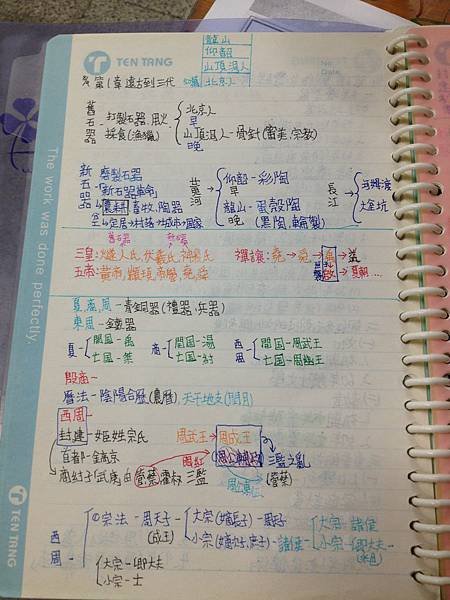 TEN TANG
龍山
仰韶
山頂洞人
北京人
No.
Date
第一章 遠古到三代
舊石器 打製石器、用火 採食(漁獵)
北京人 早
山頂洞人-骨針(審美、宗教) 晚
新石器 磨製石器
"新石器革命"
農耕、畜牧、陶器
定居→村落→城市→國家
黃河
仰韶-彩陶 早
龍山-蛋殼陶 晚 (黑陶,輪製)
長江
河姆渡
大坌坑
舊石器
三皇:燧人氏,伏羲氏,神農氏
五帝:黃帝,顓頊,帝嚳,堯,舜
禪讓:堯→舜→禹→益
啟→夏朝...
夏商周-青銅器(禮器、兵器)
東周-鐵器
夏 開國-禹 亡國-桀
商 開國-湯 亡國-紂
西周 開國-周武王 亡國-周幽王
殷商-
曆法-陰陽合曆(農曆) 天干地支(閏月)
西周-
封建-姬姓宗氏
首都-鎬京
商紂子武庚由管蔡霍叔三監
周武王→周成王
(周公輔政)
三監之亂
(管蔡)
周公東征
西周
①宗法-周天子(成王)
大宗(嫡長子)-周天子
小宗(嫡次子,庶子)-諸侯
大宗-諸侯
小宗-卿大夫
大宗-卿大夫
小宗-士
The work was done perfectly.
TEN TANG